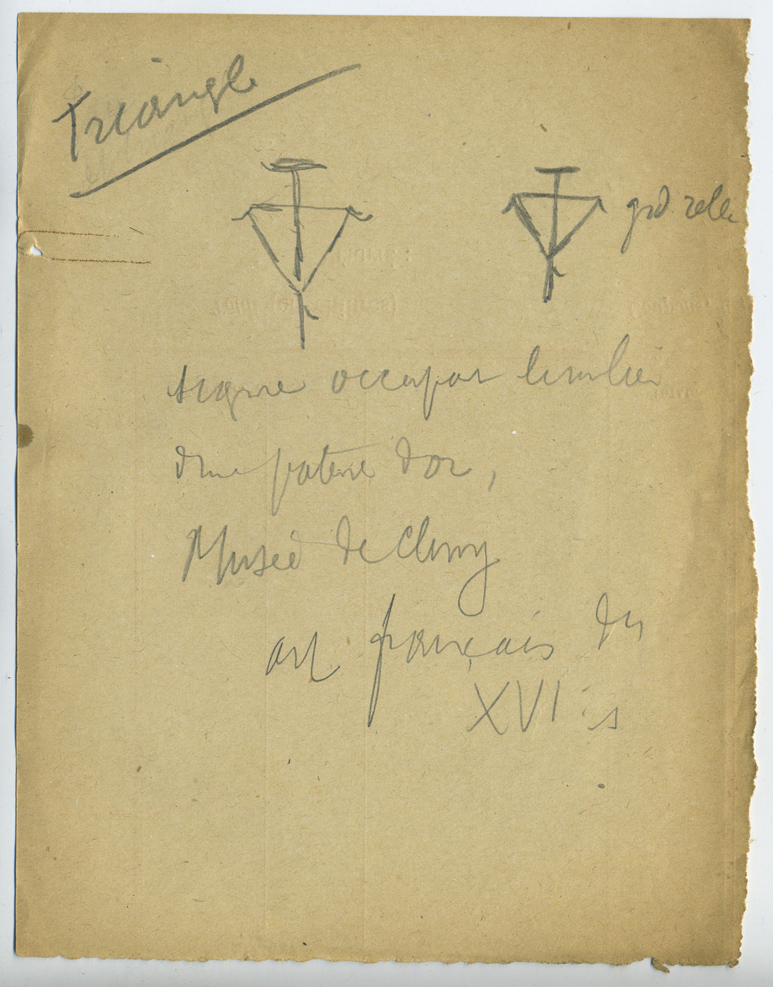 Triangle
grd
signe occupant
d'une patène d'or,
Musée de Cluny
art français du
XVI s